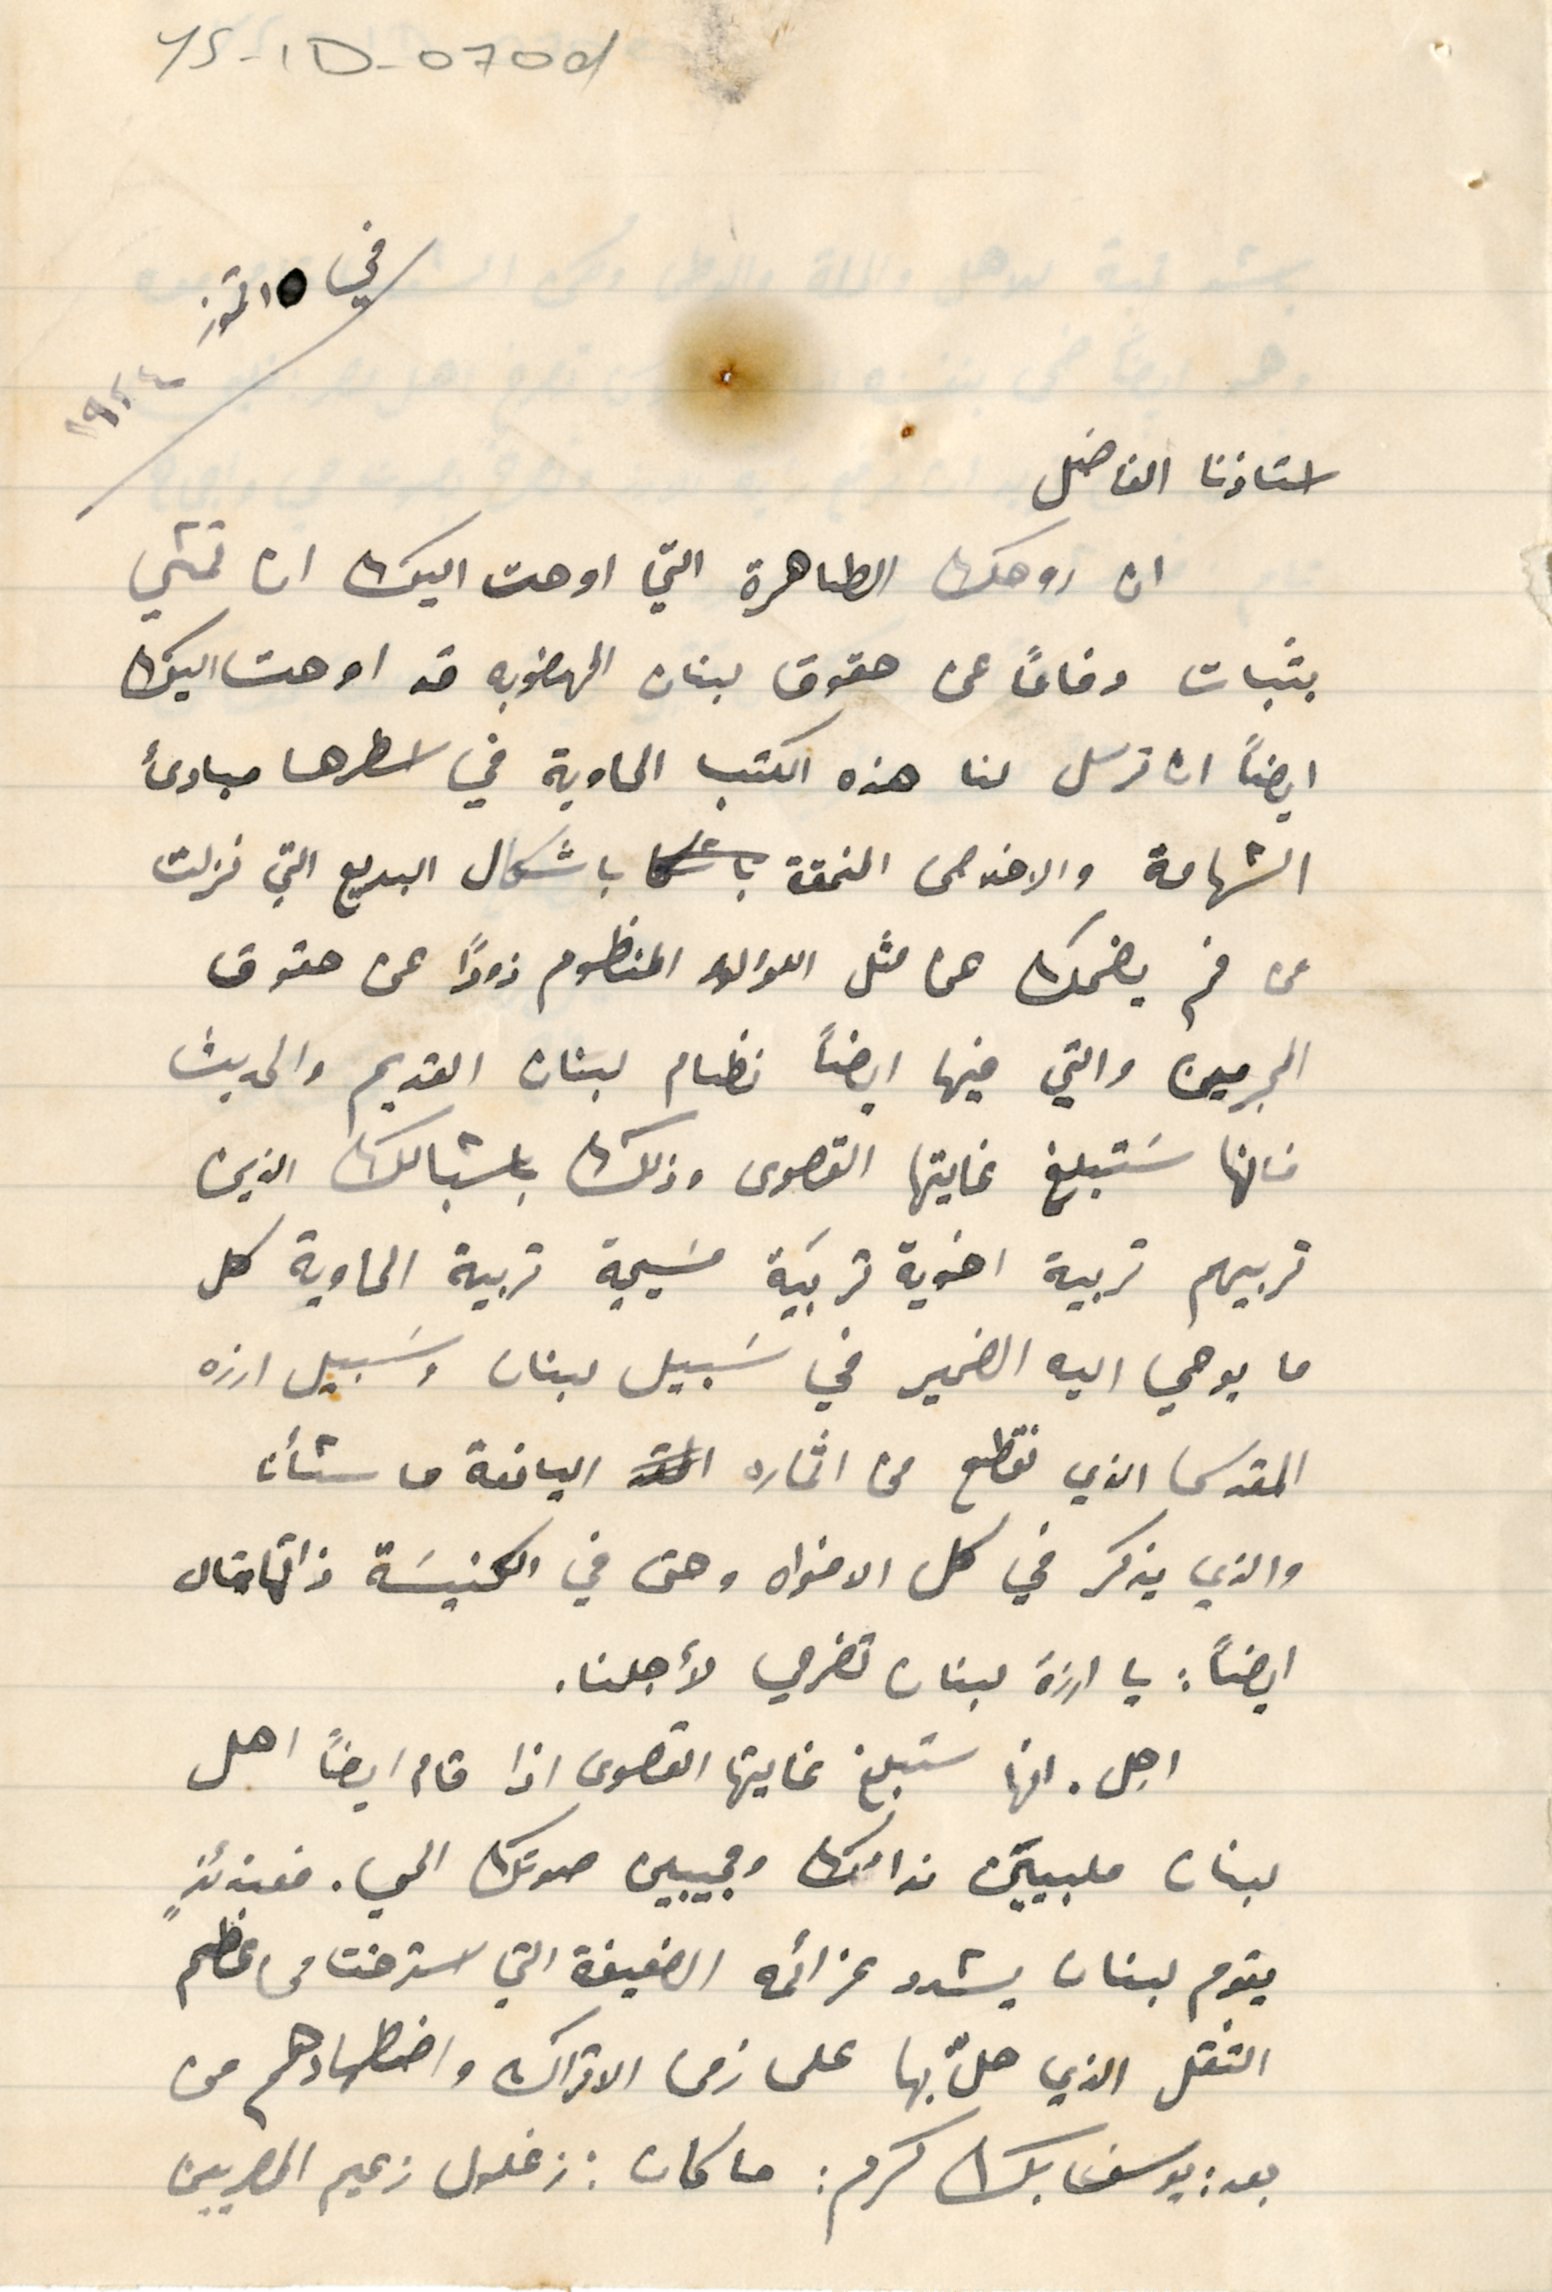 YS-1D-070d
في ١٥ تموز
١٩٢٤
استاذنا الفاضل
ان روحك الطاهرة التي اوحت اليك ان تمشي
بثبات دفاعًا عن حقوق لبنان المهضوبه قد اوحت اليك
ايضاً ان ترسل لنا هذه الكتب الحاوية في اسطرها مبادئ
الشهامة والاخلاص المنمقة باشكال البديع التي نزلت
من فم يضحك عن مثل اللؤلؤ المنظوم ذودًا عن حقوق
المجرمين والتي فيها ايضاً نظام لبنان القديم والحديث
فانها ستبلغ غايتها القصوى وذلك باشبالك الذين
تربيهم تربية اخوية تربية مسيحية تربية الحاوية كل
ما يوحي اليه الضمير في سبيل لبنان وسبيل ارزه
المقدس الذي نقطع من اثماره اليانعة ما شأنا
والذي يذكر في كل الافواه وحتى في الكنيسة ذاتها قال
ايضاً: يا ارزة لبنان تضرعي لأجلنا.
اجل. انها ستبلغ غايتها القصوى اذا قام ايضاً اهل
لبنان ملبيين ندائك ومجيبين صوتك الحي. فعندئذٍ
يقوم لبنان يشدد عزائمه الضعيفة التي استرخت من عظم
الثقل الذي حلّ بها على زمن الاتراك واضطهادهم من
بعد: يوسف بك كرم: ما كان: زغلول زعيم المصريين